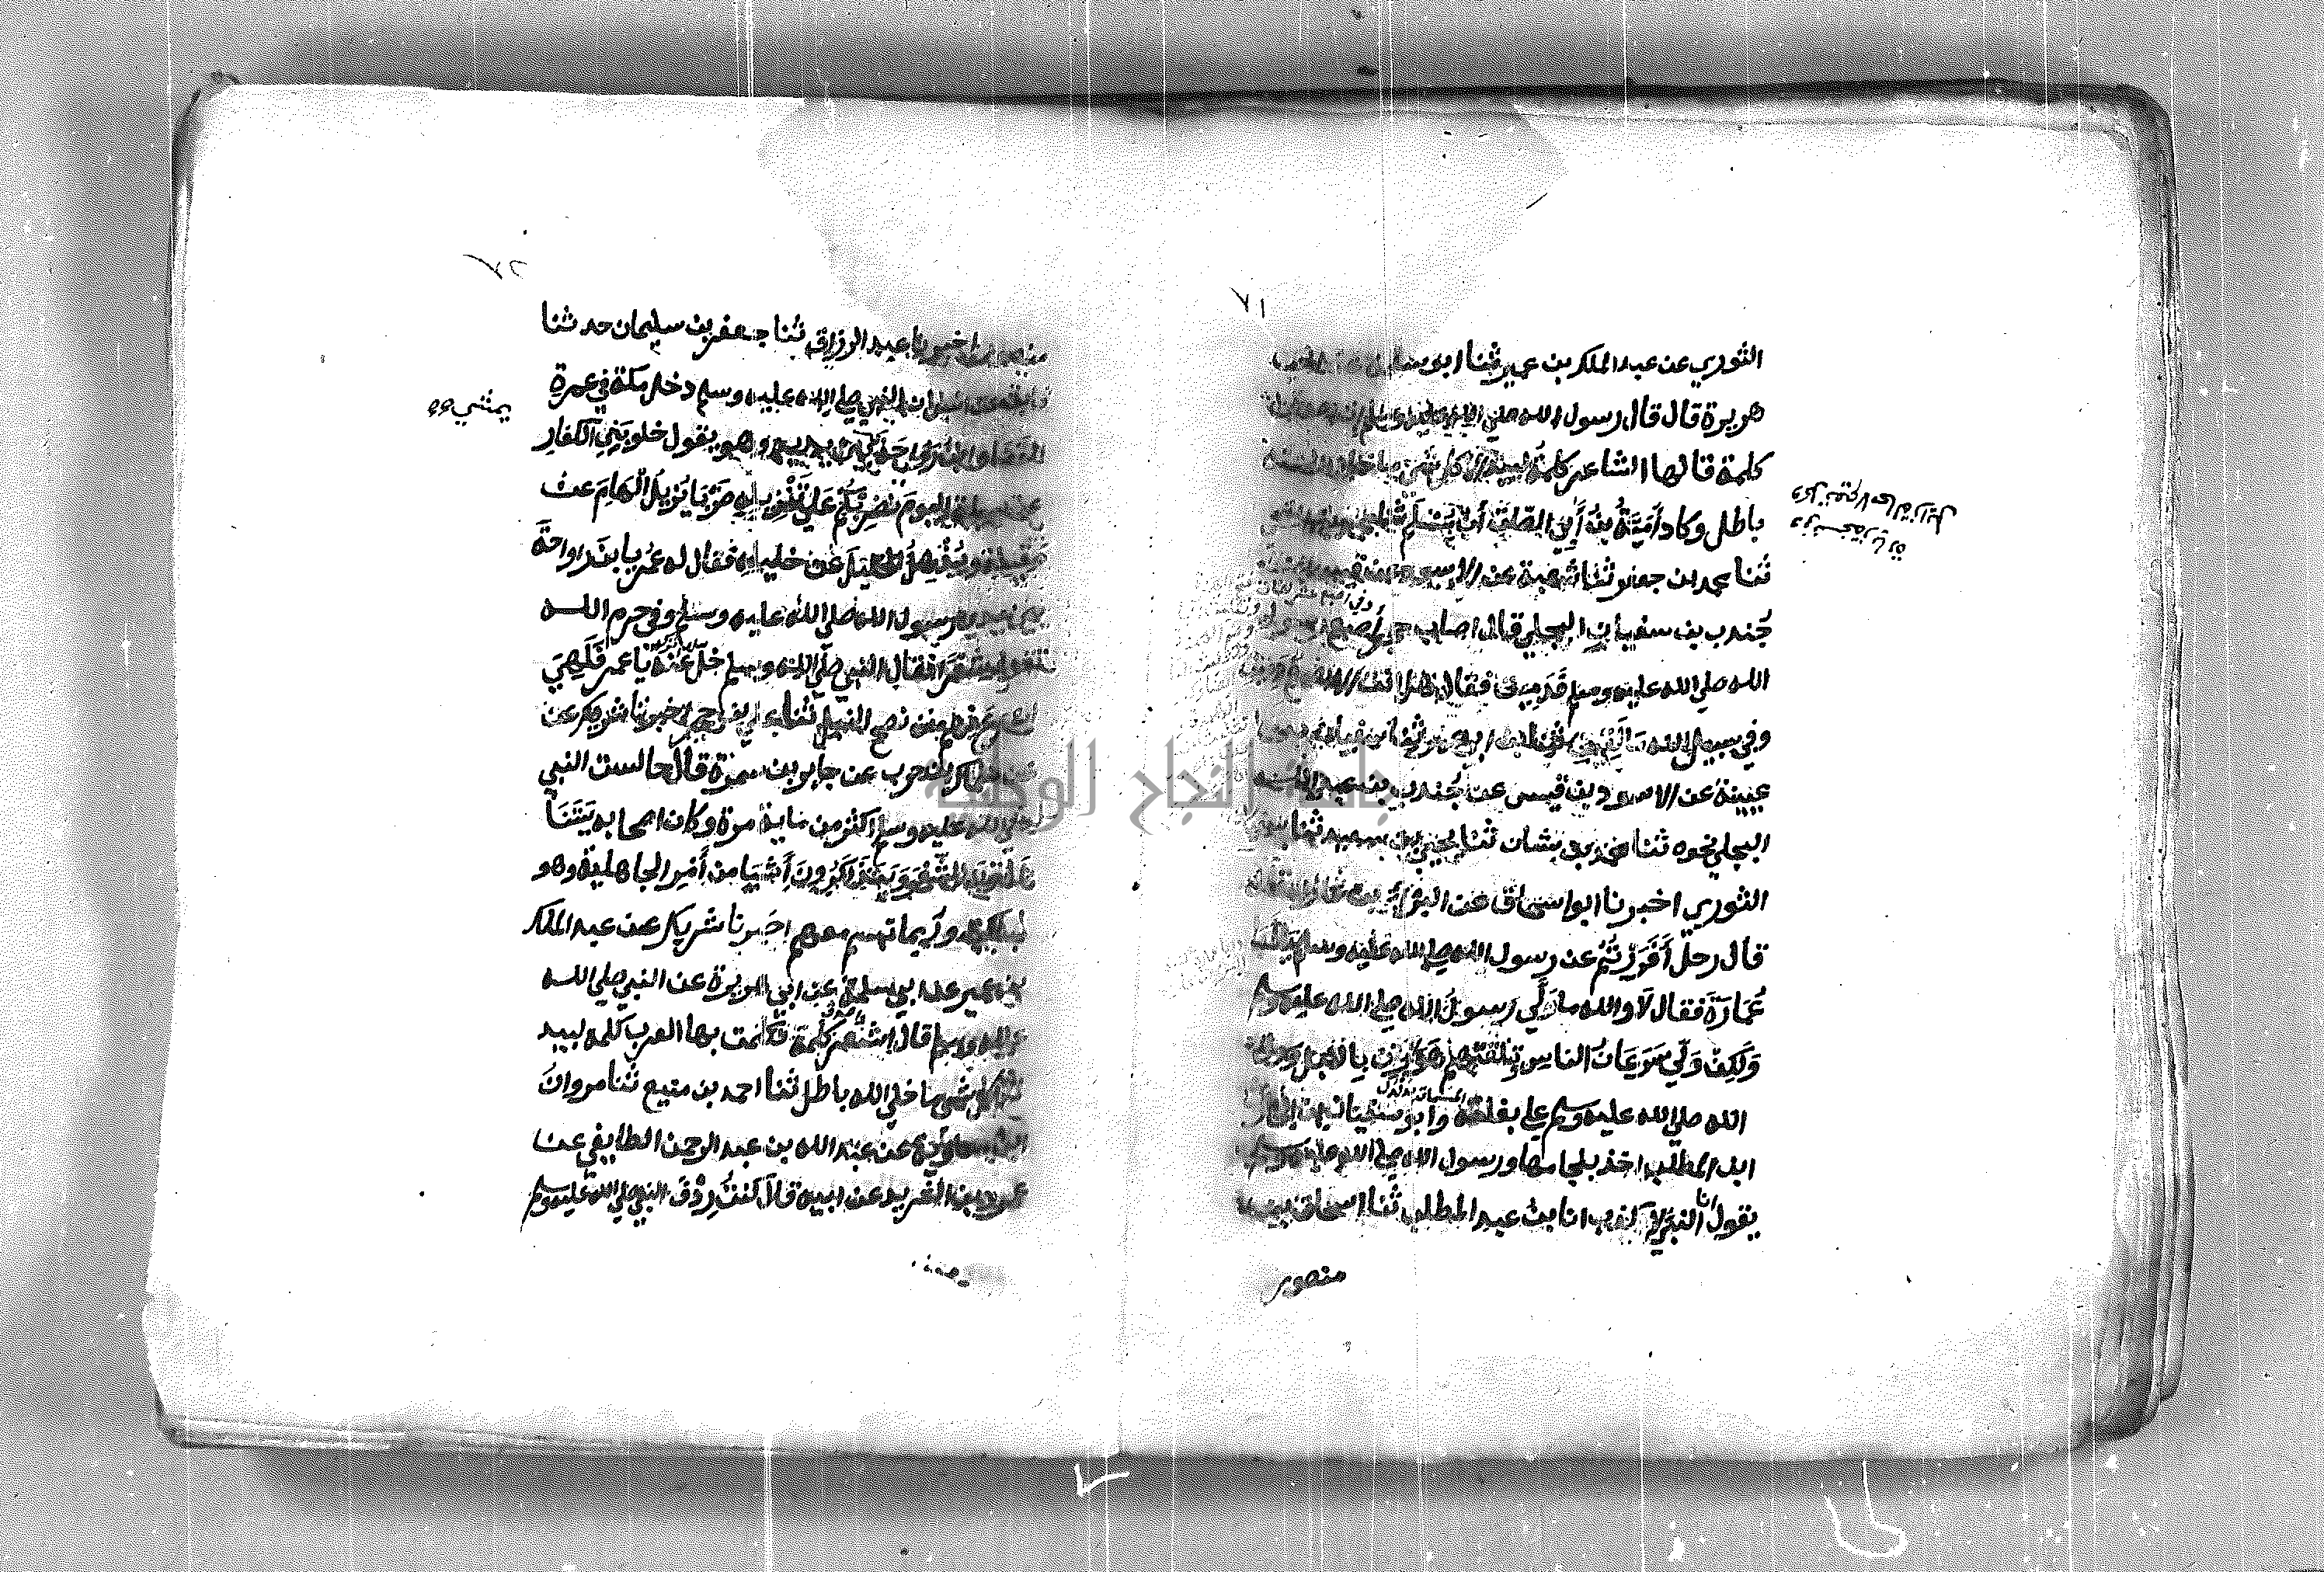 ٧١
الثوري عن عبد الملك بن عمير ثنا ابو سلمة عن ابي
هريرة قال قال رسول الله صلي الله عليه وسلم
كلمة قالها الشاعر كلمة لبيد الا كل شي ما خلا الله
باطل وكاد أمية بن أبي الصلت أن يسلم ثنا
ثنا محمد بن جعفر ثنا شعبة عن الاسود بن قيس عن
جندب بن سفيان البجلي قال اصاب حجر أصبع رسول
الله صلي الله عليه وسلم فدميت فقال هل انت الا اصبع دميت
وفي سبيل الله ما لقيت ثنا ابن ابي عمر ثنا سفيان بن
عيينة عن الاسود بن قيس عن جندب بن عبد الله
البجلي نحوه ثنا محمد بن بشار ثنا يحيى بن سعيد ثنا سفيان
الثوري اخبرنا ابو اسحاق عن البراء بن عازب قال
قال رجل أفررتم عن رسول الله صلي الله عليه وسلم يا ابا
عمارة فقال لا والله ما ولي رسول الله صلي الله عليه وسلم
ولكن ولي سرعان الناس تلقتهم هوازن بالنبل ورسول
الله صلي الله عليه وسلم علي بغلته وابو سفيان بن الحارث
ابن المطلب اخذ بلجامها ورسول الله صلي الله عليه وسلم
يقول انا النبي لا كذب انا بن عبد المطلب ثنا اسحاق بن
منصور
٧٢
منصور اخبرنا عبد الرزاق ثنا جعفر بن سليمان حدثنا
ثابت عن انس ان النبي صلي الله عليه وسلم دخل مكة في عمرة
القضا وابن رواحة يمشي بين يديه وهو يقول خلو بني الكفار
عن سبيله اليوم نضربكم علي تنزيله ضربا يزيل الهام عن
مقيله ويذهل الخليل عن خليله فقال له عمر يا بن رواحة
بين يدي رسول الله صلي الله عليه وسلم وفي حرم الله
تقول شعرا فقال النبي صلي الله عليه وسلم خل عنه يا عمر فلهي
اسرع فيهم من نضح النبل ثنا علي بن حجر اخبرنا شريك عن
سماك بن حرب عن جابر بن سمرة قال جالست النبي
صلي الله عليه وسلم اكثر من ماية مرة وكان اصحابه يتنا
شدون الشعر ويتذاكرون أشيا من أمر الجاهلية وهو
ساكت وربما تبسم معهم اخبرنا شريك عن عبد الملك
بن عمير عن ابي سلمة عن ابي هريرة عن النبي صلي الله
عليه وسلم قال اشعر كلمة تكلمت بها العرب كلمة لبيد
الا كل شي ما خلي الله باطل ثنا احمد بن منيع ثنا مروان
ابن معاوية عن عبد الله بن عبد الرحمن الطايفي عن
عمرو بن الشريد عن ابيه قال كنت ردف النبي صلي الله عليه وسلم
جامعة النجاح الوطنية